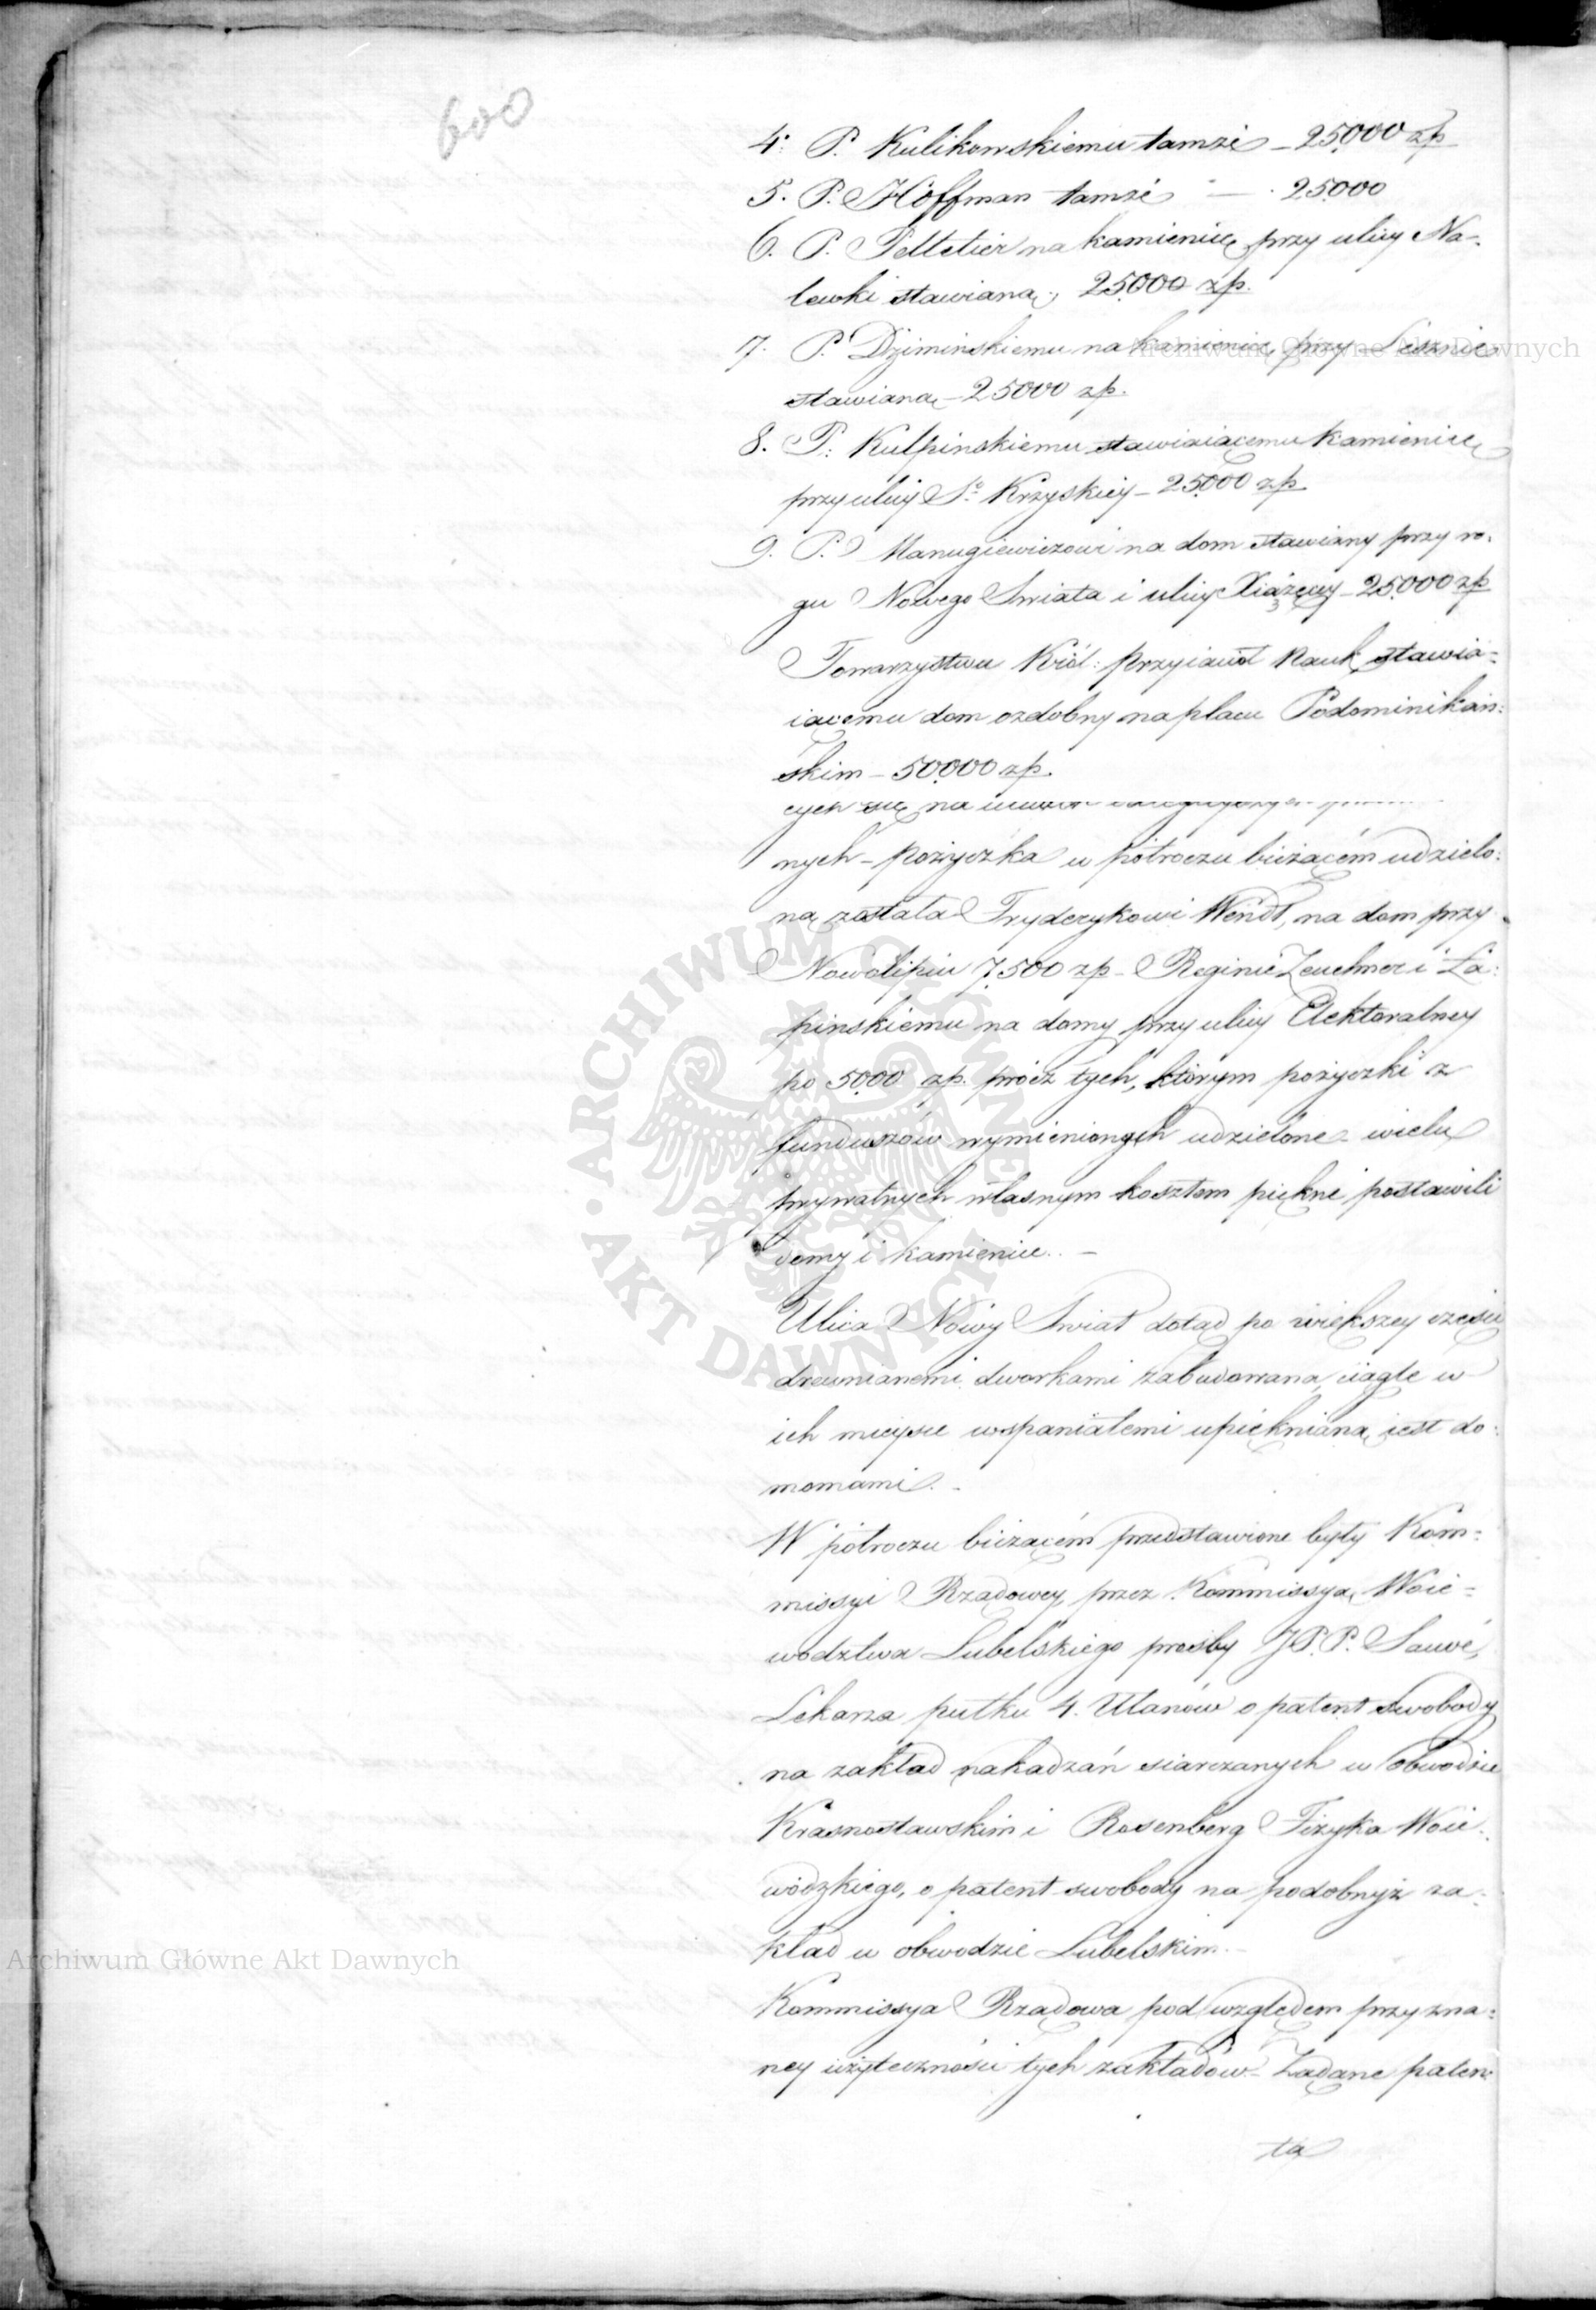 600
4. P. Kulikowskiemu tamże – 25000 zp
5. P. Hoffman tamże — 25000
6. P. Pelletier na kamienicę przy ulicy Na-
lewki stawianą, 25000 zp.
7. P. Dzimińskiemu na kamienicę przy Lesznie
stawianą – 25000 zp.
8. P. Kulpinskiemu stawiaiącemu kamienicę
przy ulicy So Krzyskiey – 25000 zp
9. P. Manugiewiczowi na dom stawiany przy ro-
gu Nowego Swiata i ulicy Xiążęcy – 25.000 zp
Towarzystwu Król: Przyiaciół Nauk stawia-
iącemu dom ozdobny na placu Podominikań-
skim – 50000 zp.
cych się na
nych – pożyczka w półroczu bieżącém udzielo-
ną została Fryderykowi Wendt, na dom przy
Nowolipiu 7.500 zp – Reginie i Ła-
pinskiemu na domy przy ulicy Elektoralney
po 5000 zp. prócz tych, którym pożyczki z
funduszów wymienionych udzielone – wielu
prywatnych własnym kosztem piękne postawili
domy i kamienice. –
Ulica Nowy Swiat dotąd po większey części
drewnianemi dworkami zabudowana, ciągle w
ich mieysce wspaniałemi upiękniana iest do-
momami. –
W półroczu bieżącém przedstawione były Kom-
missyi Rządowey przez Kommissyą Woie-
wodztwa Lubelskiego prośby JP.P. Sauvé,
Lekarza pułku 4. Ułanów o patent swobody
na zakład nakadzań siarczanych w obwodzie
Krasnostawskim i Rosenberg Fizyka Woie-
wódzkiego, o patent swobody na podobnyż za-
kład w obwodzie Lubelskim. –
Kommissya Rządowa pod względem przyzna-
ney użyteczności tych zakładów – Żądane paten-
ta
Archiwum Główne Akt Dawnych
Archiwum Główne Akt Dawnych
ARCHIWUM GŁÓWNE
AKT DAWNYCH